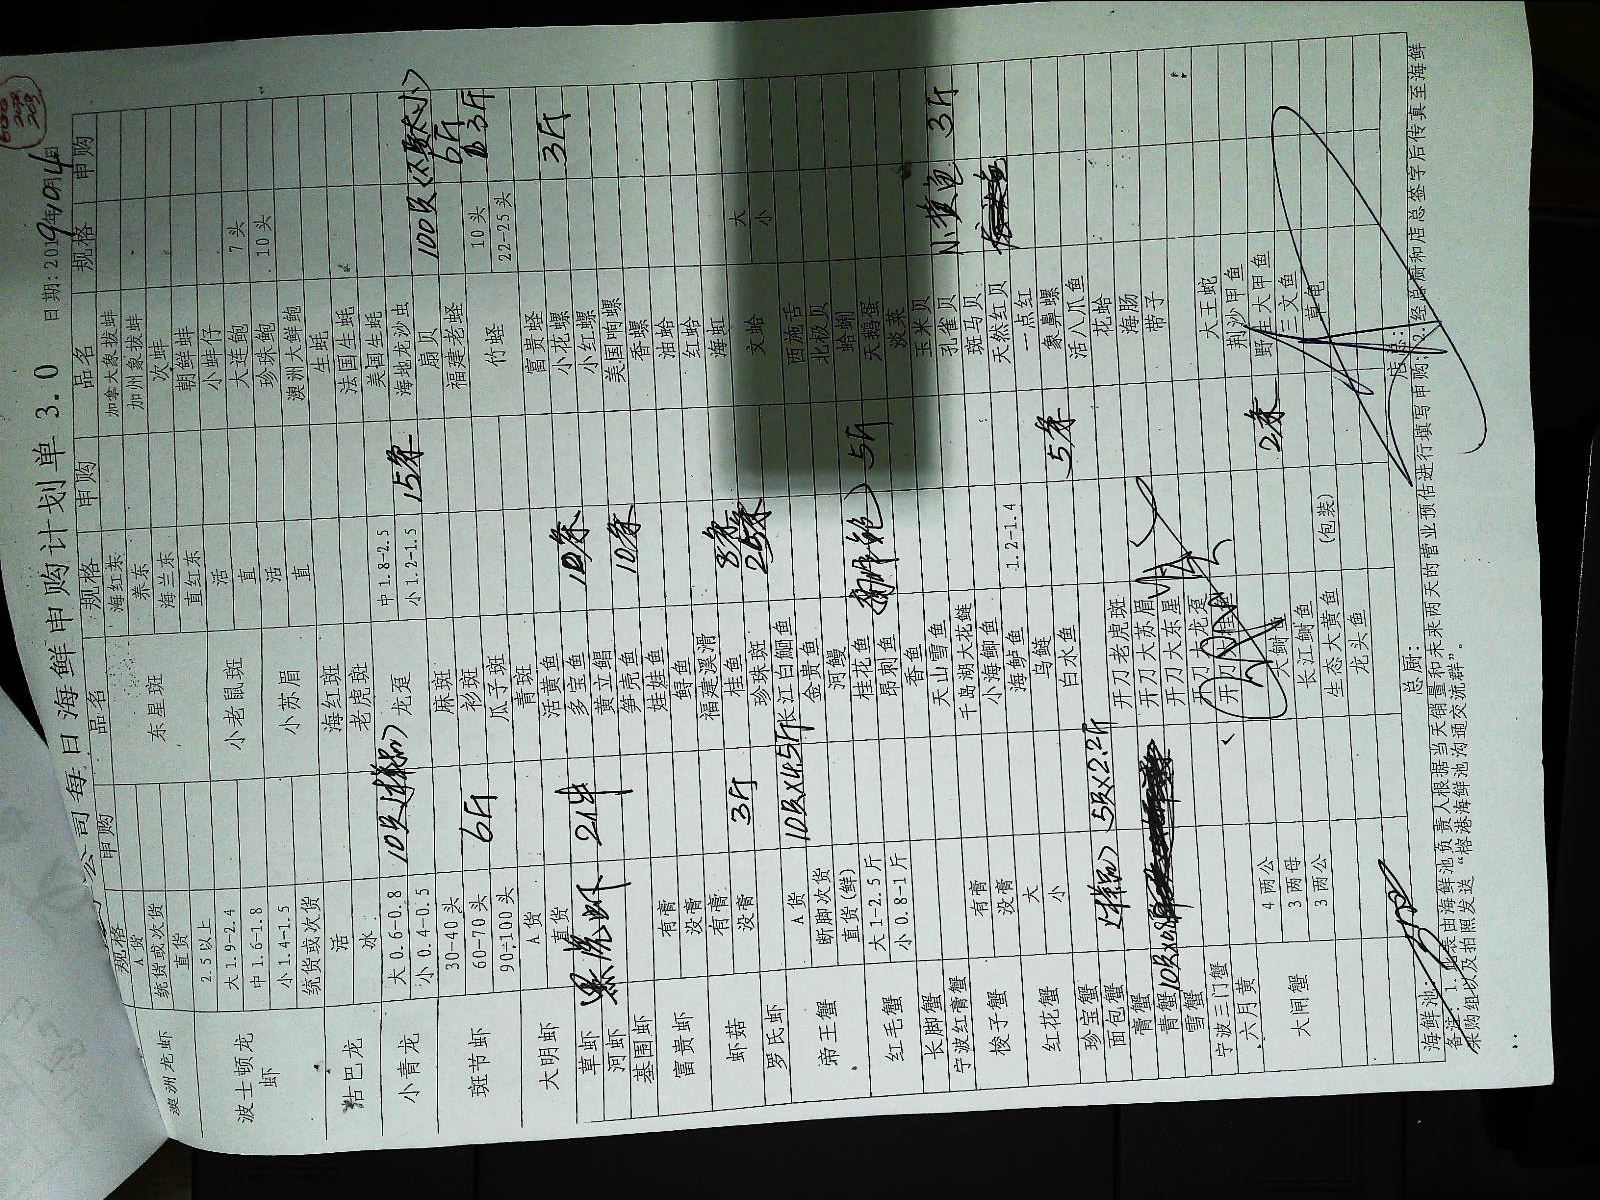 公司每日海鲜申购计划单3.0 日期:2019年10月4日
规格 申购 品名 规格 申购 品名 规格 申购
澳洲龙虾 A货 东星斑 海红东 加拿大象拔蚌
统货或次货 养东 加州象拔蚌
直货 海兰东 次蚌
波士顿龙虾 2.5以上 直红东 朝鲜蚌
大1.9-2.4 小老鼠斑 活 小蚌仔
中1.6-1.8 直 大连鲍 7头
小1.4-1.5 小苏眉 活 珍珠鲍 10头
统货或次货 直 澳洲大鲜鲍
古巴龙 活 海红斑 生蚝
冰 老虎斑 法国生蚝
小青龙 大0.6-0.8 10只(样品) 龙趸 中1.8-2.5 美国生蚝
小0.4-0.5 小1.2-1.5 15条 海地龙沙虫
斑节虾 30-40头 麻斑 扇贝 100只(不要太小)
60-70头 6斤 杉斑 福建老蛏 6斤
90-100头 瓜子斑 竹蛏 10头 3斤
大明虾 A货 青斑 22-25头
直货 活黄鱼 富贵蛏
草虾 多宝鱼 10条 小花螺 3斤
河虾 黄立鲳 小红螺
基围虾 笋虎鱼 10条 美国响螺
富贵虾 有膏 娃娃鱼 香螺
没膏 鲟鱼 油蛤
虾菇 有膏 福建溟滑 红蛤
没膏 3斤 桂鱼 8条 海虹
罗氏虾 珍珠斑 25条 文蛤 大
帝王蟹 A货 10只X4.5斤 长江白鮰鱼 小
断脚次货 金贵鱼 西施舌
直货(鲜) 河鳗 北极贝
红毛蟹 大1-2.5斤 桂花鱼 蛤蜊
小0.8-1斤 昂刺鱼 5斤 天鹅蛋
长脚蟹 香鱼 淡菜
宁波红膏蟹 天山雪鱼 玉米贝
梭子蟹 有膏 千岛湖大花鲢 孔雀贝 3斤
没膏 小海鲫鱼 斑马贝
红花蟹 大 海鲈鱼 1.2-1.4 天然红贝
小 乌鲢 一点红
珍宝蟹 白水鱼 5条 象鼻螺
面包蟹 (样品) 5只X2.2斤 活八爪鱼
膏蟹 开刀老虎斑 花蛤
青蟹 开刀大苏眉 海肠
雪蟹 开刀大东星 带子
宁波三门蟹 开刀大龙趸
六月黄 大王蛇
大闸蟹 4两公 大鲥鱼 荆沙甲鱼
3两母 长江鲥鱼 2条 野生大甲鱼
3两公 生态大黄鱼 (包装) 三文鱼
龙头鱼 草龟
海鲜池: 总厨: 店总:
备注:1.此表由海鲜池负责人根据当天销量和未来两天的营业预估进行填写申购;2.经总厨和店总签字后传真至海鲜
采购组以及拍照发送“榕港海鲜池沟通交流群”。